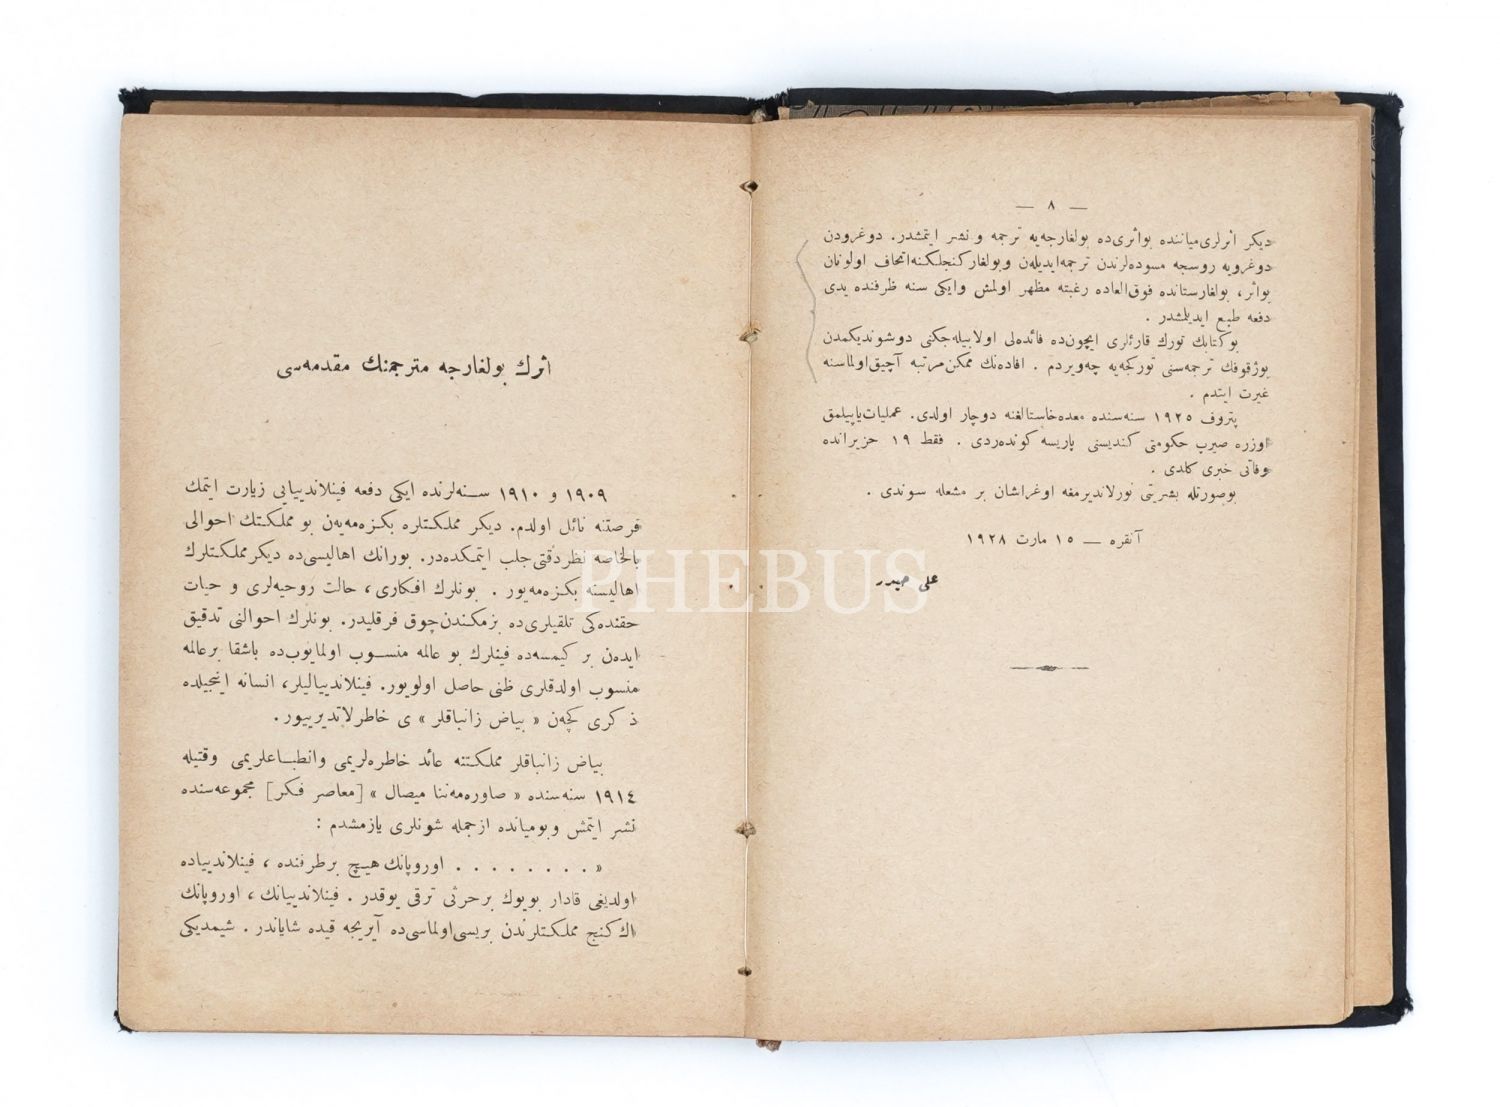 — ٨ —
دیكر اثرلری میاننده بواثری ده بولغارجه یه ترجمه و نشر ایتمشدر. دوغرودن
دوغرویه روسجه مسوده لرندن ترجمه ایدیله ن وبولغار كنجلكنه اتحاف اولونان
بواثر، بولغارستانده فوق العاده رغبته مظهر اولمش وایكی سنه ظرفنده یدی
دفعه طبع ایدیلمشدر .
بوكتابك تورك قارئلری ایچون ده فائده لی اولابیله جكنی دوشوندیكمدن
بوژقوفك ترجمه سنی توركجه یه چه ویردم . افاده نك ممكن مرتبه آچیق اولماسنه
غیرت ایتدم .
پتروف ١٩٢٥ سنه سنده معده خاستالغنه دوچار اولدی. عملیات یاپیلمق
اوزره صیرب حكومتی كندیسنی پاریسه كونده ردی . فقط ١٩ حزیرانده
وفاتی خبری كلدی .
بوصورتله بشریتی نورلاندیرمغه اوغراشان بر مشعله سوندی .
آنقره — ١٥ مارت ١٩٢٨
علی حیدر
اثرك بولغارجه مترجمنك مقدمه سی
١٩٠٩ و ١٩١٠ سنه لرنده ایكی دفعه فینلاندییایی زیارت ایتمك
فرصتنه نائل اولدم. دیكر مملكتلره بكزه مه یه ن بو مملكتك احوالی
بالخاصه نظر دقتی جلب ایتمكده در. بورانك اهالیسی ده دیكر مملكتلرك
اهالیسنه بكزه مه یور . بونلرك افكاری، حالت روحیه لری و حیات
حقنده كی تلقیلری ده بزمكندن چوق فرقلیدر. بونلرك احوالنی تدقیق
ایده ن بر كیمسه ده فینلرك بو عالمه منسوب اولمایوب ده باشقا بر عالمه
منسوب اولدقلری ظنی حاصل اولویور. فینلاندییالیلر، انسانه انجیلده
ذكری كچه ن « بیاض زانباقلر » ی خاطرلاتدیرییور.
بیاض زانباقلر مملكتنه عائد خاطره لریمی وانطباعلریمی وقتیله
١٩١٤ سنه سنده « صاوره مه ننا میصال » [معاصر فكر] مجموعه سنده
نشر ایتمش وبومیانده ازجمله شونلری یازمشدم :
« . . . . . . . . اوروپانك هیچ بر طرفنده ، فینلاندییاده
اولدیغی قادار بویوك بر حرثی ترقی یوقدر . فینلاندییانك ، اوروپانك
اك كنج مملكتلرندن بریسی اولماسی ده آیریجه قیده شایاندر . شیمدیكی
PHEBUS